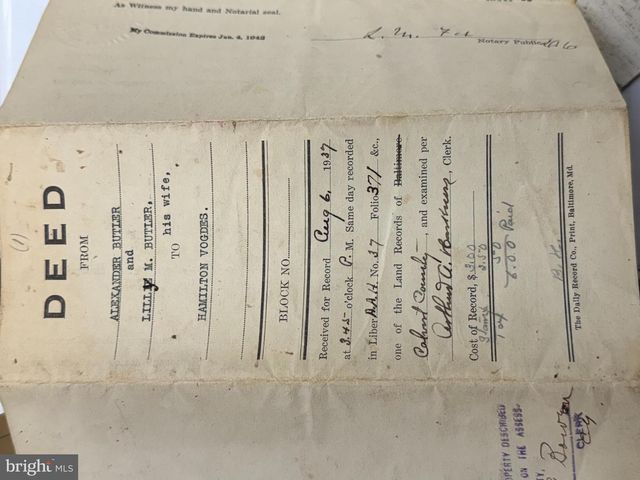 As Witness my hand and Notarial seal.
My Commission Expires Jan. 4, 1943
Notary Public
(1)
DEED
FROM
ALEXANDER BUTLER
and
LILLY M. BUTLER,
his wife,
TO
HAMILTON VOGDES.
BLOCK NO.
Received for Record Aug 6, 1937
at 3.45 o'clock P. M. Same day recorded
in Liber A.A.H. No. 37 Folio 371 &c.,
one of the Land Records of Baltimore
Calvert County, and examined per
Arthur A. , Clerk.
Cost of Record, $ 3.00
3.50
50
6.00 Paid
The Daily Record Co., Print, Baltimore, Md.
PROPERTY DESCRIBED
ON THE ASSESS-
CLERK
bright MLS